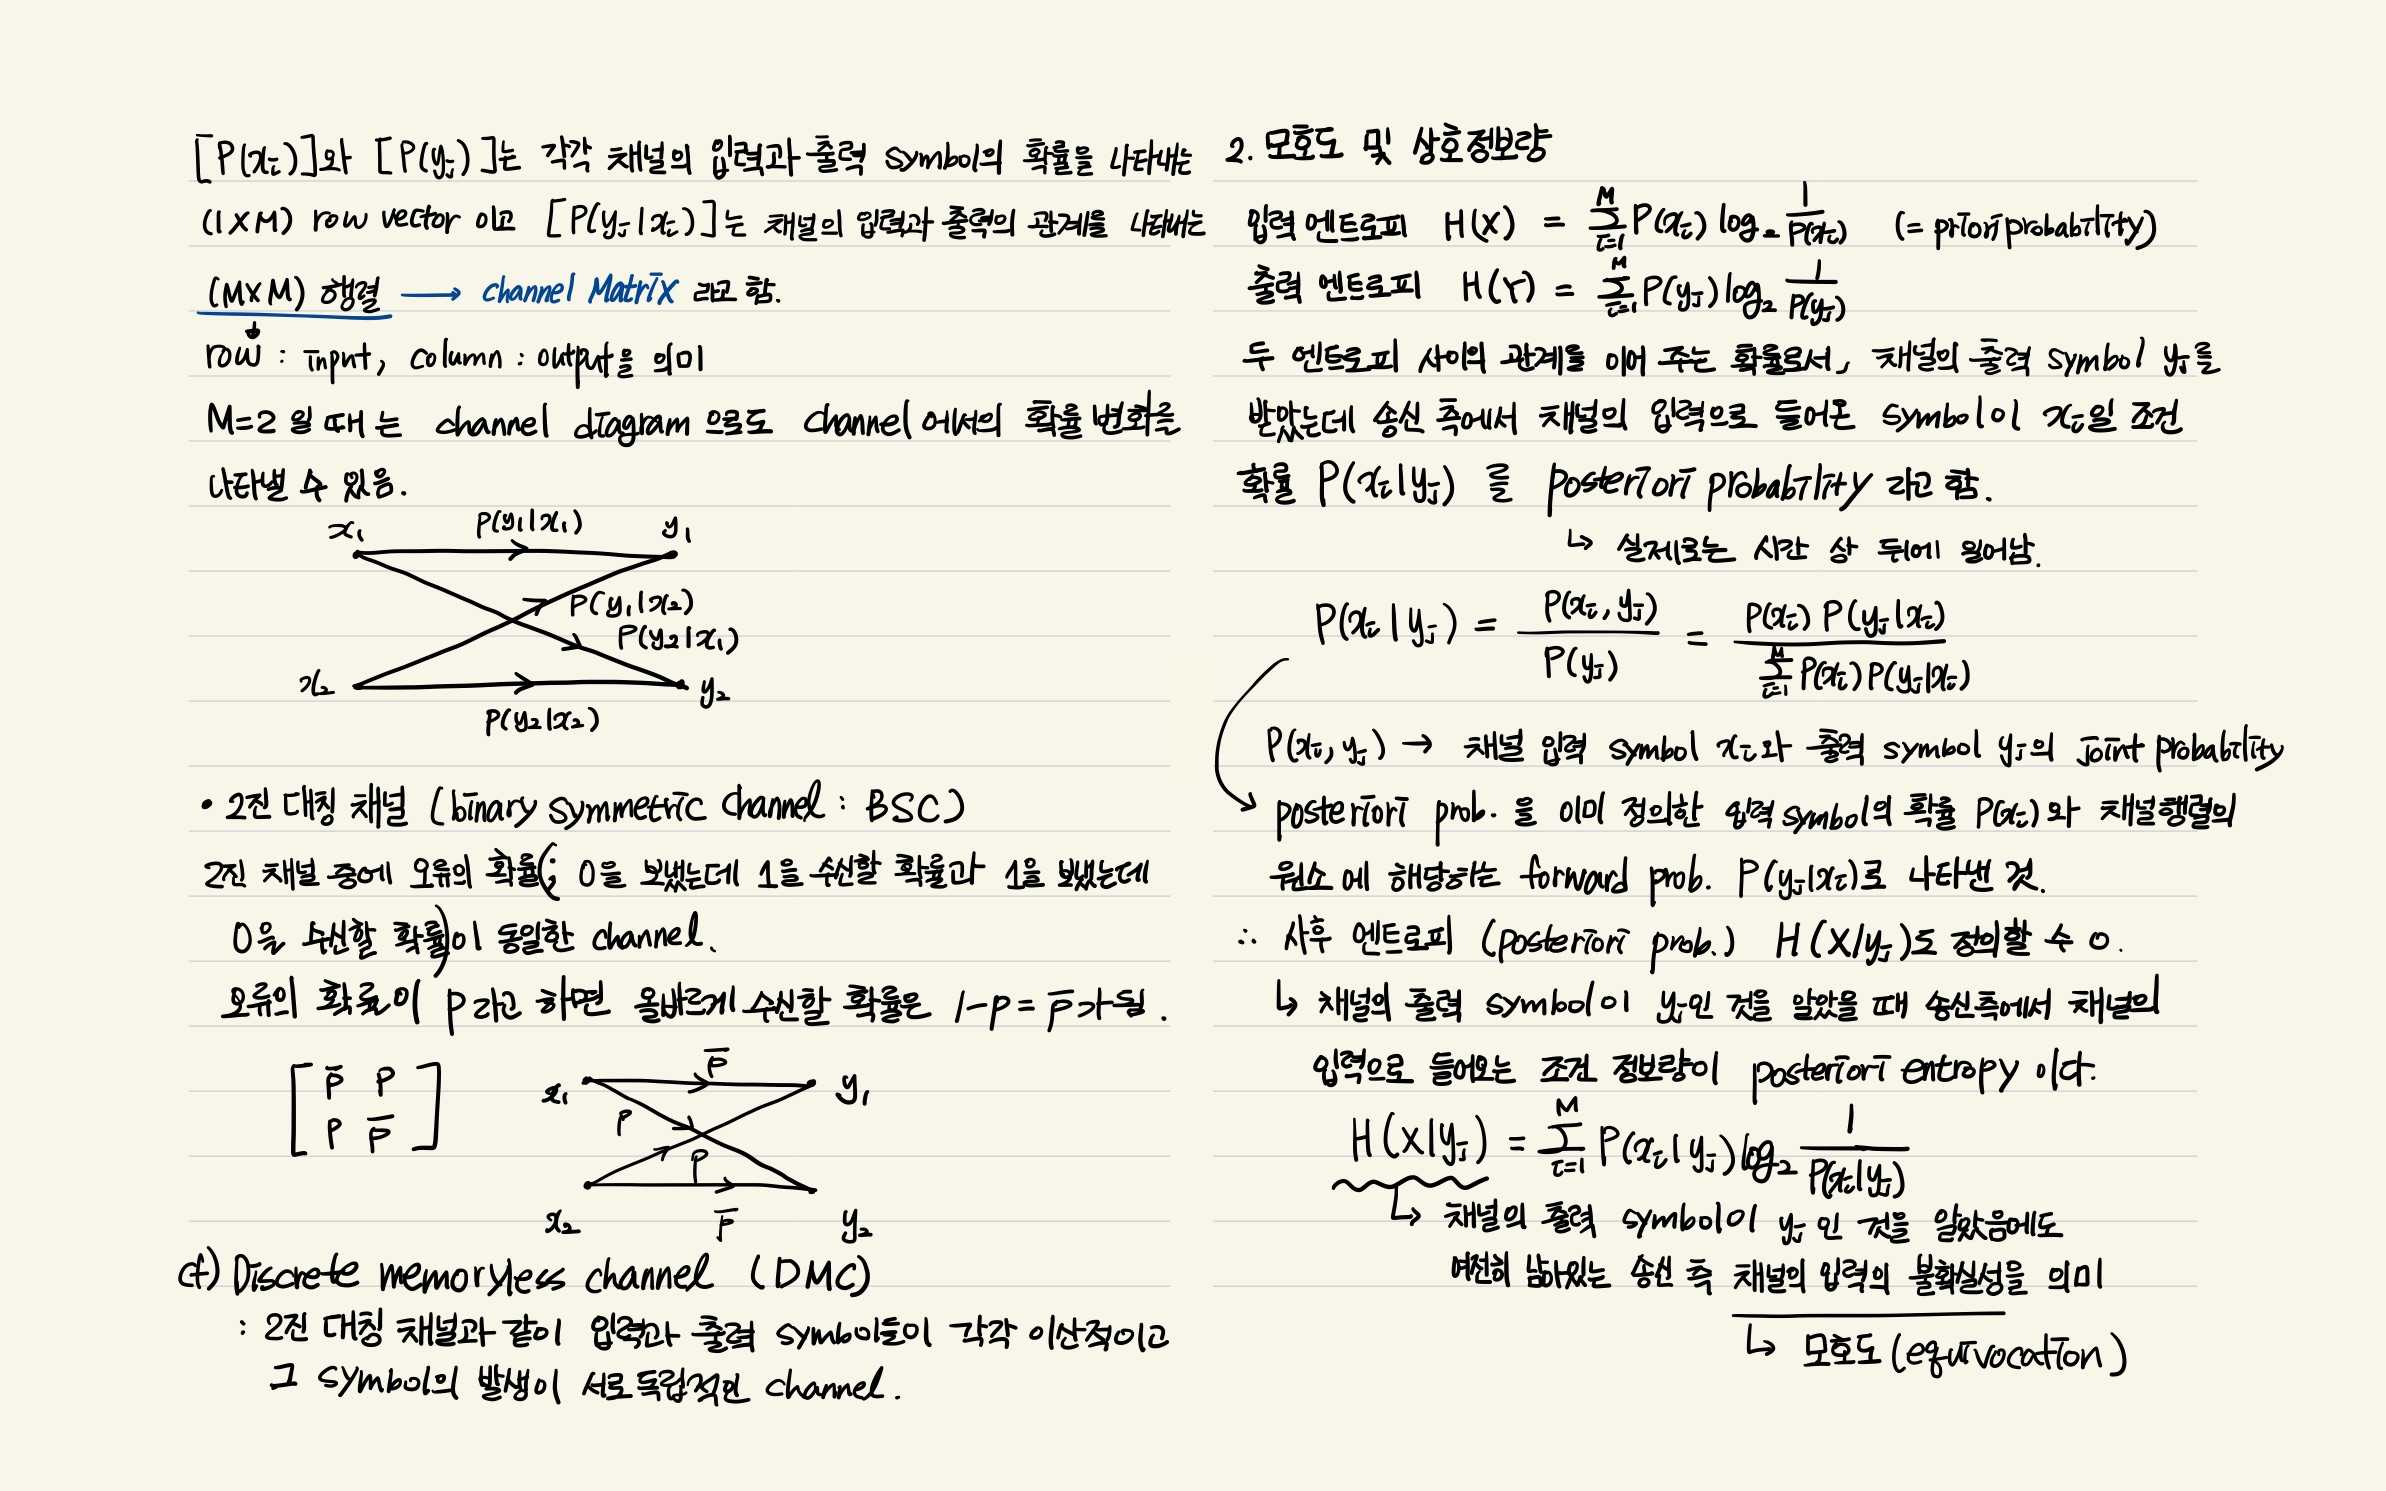 [P(xi)]와 [P(yj)]는 각각 채널의 입력과 출력 symbol의 확률을 나타내는
(1×M) row vector 이고 [P(yj|xi)]는 채널의 입력과 출력의 관계를 나타내는
(M×M) 행렬 → channel Matrix 라고 함.
row : input, column : output을 의미
M=2 일 때 는 channel diagram 으로도 channel 에서의 확률 변화를
나타낼 수 있음.
x₁ P(y₁|x₁) y₁
P(y₁|x₂)
P(y₂|x₁)
x₂ y₂
P(y₂|x₂)
• 2진 대칭 채널 (binary symmetric channel : BSC)
2진 채널 중에 오류의 확률(; 0을 보냈는데 1을 수신할 확률과 1을 보냈는데
0을 수신할 확률)이 동일한 channel.
오류의 확률이 p 라고 하면 올바르게 수신할 확률은 1-p = p̅가 됨.
[ p̅ p
p p̅ ]
p̅
x₁ y₁
p
p
x₂ p̅ y₂
cf) Discrete memoryless channel (DMC)
: 2진 대칭 채널과 같이 입력과 출력 symbol들이 각각 이산적이고
그 symbol의 발생이 서로 독립적인 channel.
2. 모호도 및 상호정보량
입력 엔트로피 H(X) = M∑i=1 P(xi) log₂ 1/P(xi) (= priori probability)
출력 엔트로피 H(Y) = M∑i=1 P(yj) log₂ 1/P(yj)
두 엔트로피 사이의 관계를 이어 주는 확률로서, 채널의 출력 symbol yj를
받았는데 송신 측에서 채널의 입력으로 들어온 symbol이 xi일 조건
확률 P(xi|yj) 를 posteriori probability 라고 함.
↳ 실제로는 시간 상 뒤에 일어남.
P(xi|yj) = P(xi, yj)/P(yj) = P(xi) P(yj|xi)/M∑i=1 P(xi)P(yj|xi)
P(xi, yj) → 채널 입력 symbol xi와 출력 symbol yj의 joint probability
posteriori prob. 을 이미 정의한 입력 symbol의 확률 P(xi)와 채널행렬의
원소 에 해당하는 forward prob. P(yj|xi)로 나타낸 것.
∴ 사후 엔트로피 (posteriori prob.) H(X/yj)도 정의할 수 o.
↳ 채널의 출력 symbol이 yj인 것을 알았을 때 송신측에서 채널의
입력으로 들어오는 조건 정보량이 posteriori entropy 이다.
H(X|yj) = M∑i=1 P(xi|yj) log₂ 1/P(xi|yj)
↳ 채널의 출력 symbol이 yj 인 것을 알았음에도
여전히 남아있는 송신 측 채널의 입력의 불확실성을 의미
↳ 모호도(equivocation)